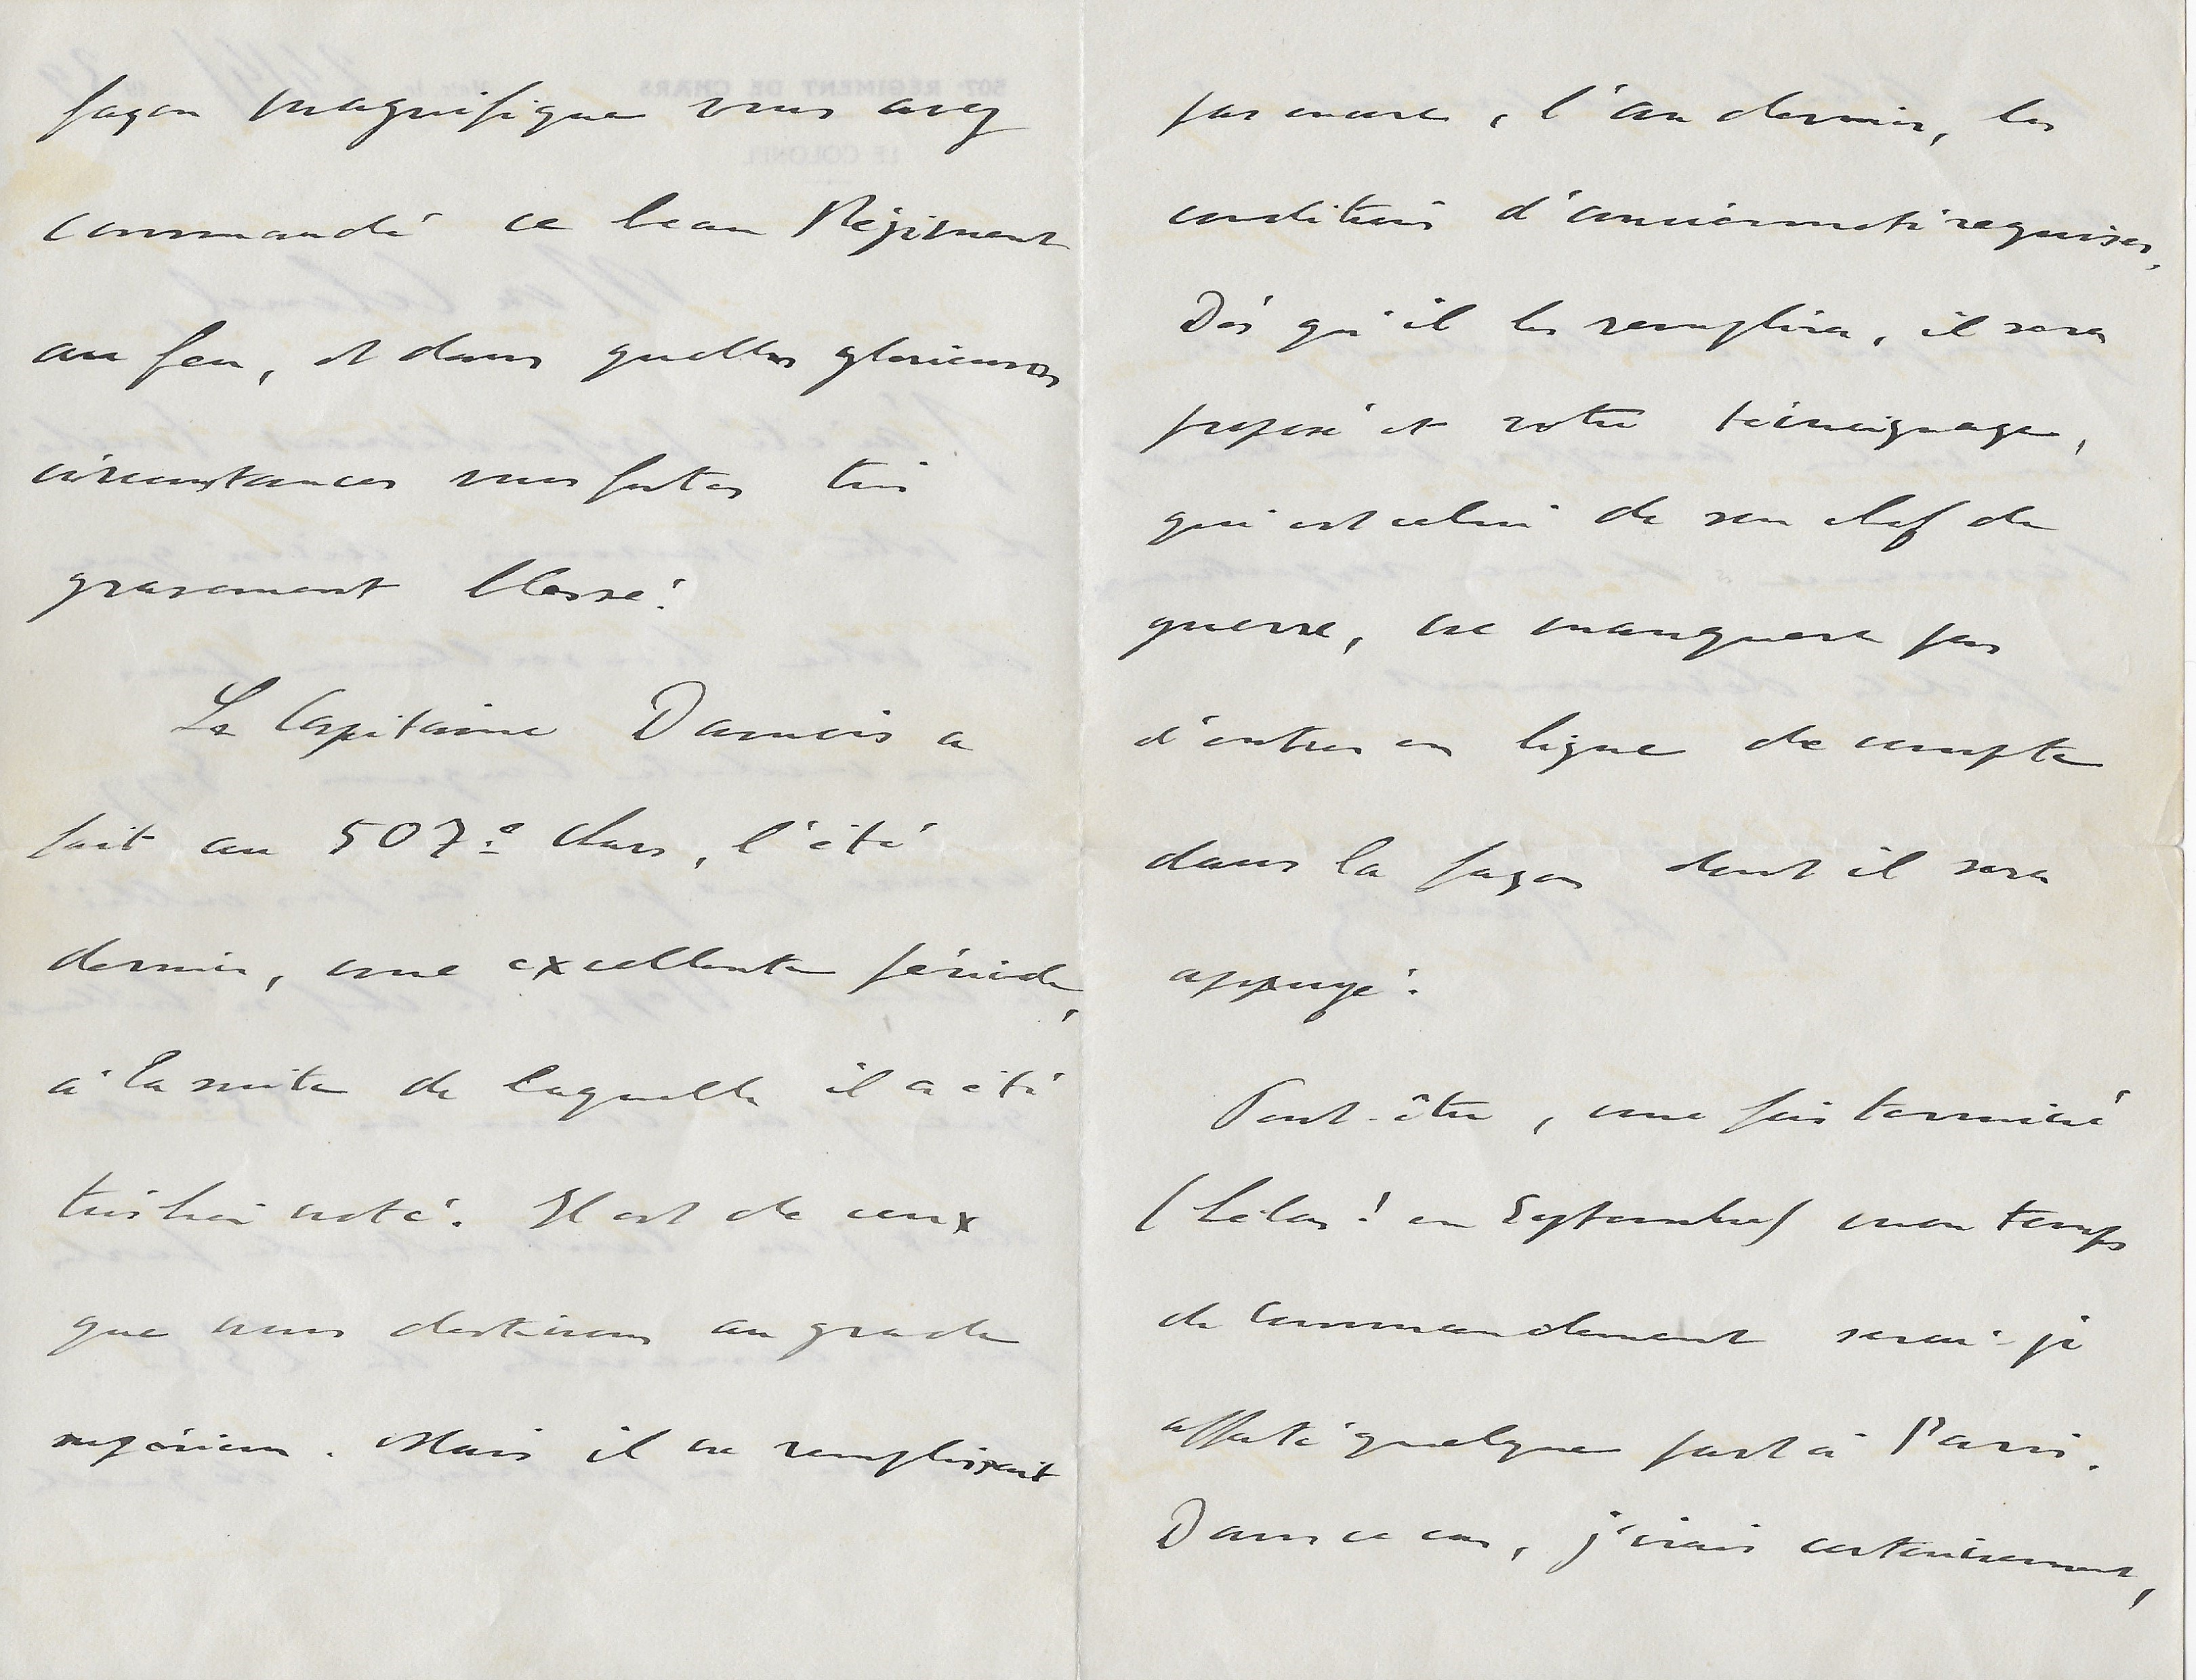 façon magnifique vous avez
commandé ce beau Régiment
au feu, et dans quelles glorieuses
circonstances vous fûtes très
gravement blessé.
Le Capitaine Damois a
fait au 507e Chars, l'été
dernier, une excellente période,
à la suite de laquelle il a été
très bien noté. Il est de ceux
que nous destinons au grade
supérieur. Mais il ne remplissait
pas encore, l'an dernier, les
conditions d'ancienneté requises.
Dès qu'il les remplira, il sera
proposé et votre témoignage,
qui est celui de son chef de
guerre, ne manquera pas
d'entrer en ligne de compte
dans la façon dont il sera
appuyé.
Peut-être, une fois terminé
(hélas ! en Septembre) mon temps
de commandement serai-je
affecté quelque part à Paris.
Dans ce cas, j'irais certainement,